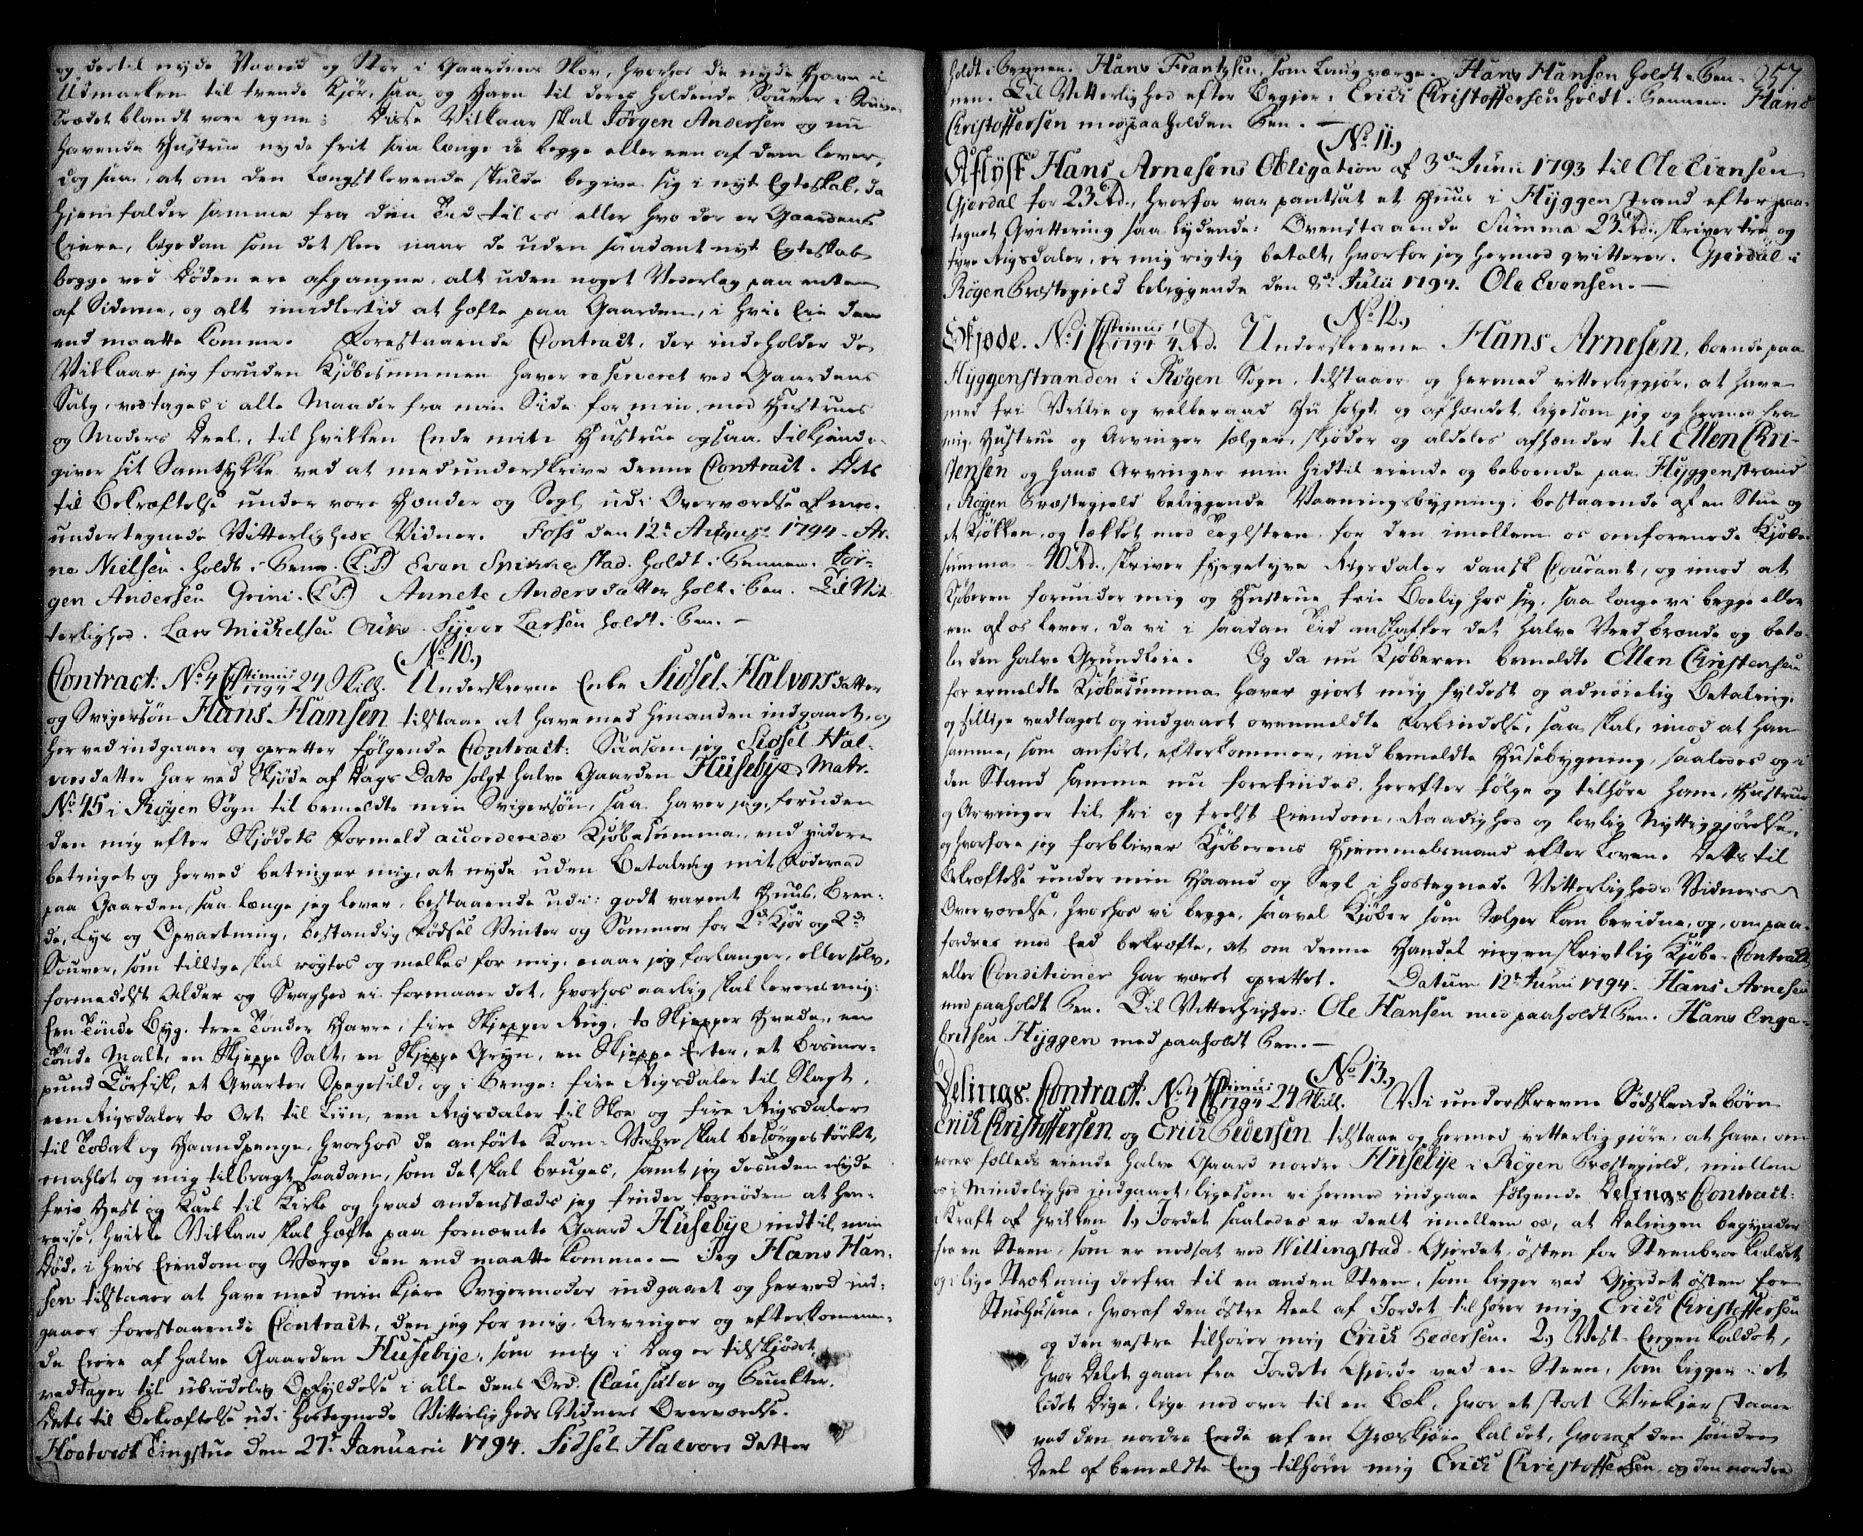 og dertil nyde Vaaned og Skov i Gaardens Skov, hvorhos de nyde Havn i
Udmarken til trende Kjør, saa og Havn til deres holdende Souver i Souve-
Trædet blandt vore egne; Disse Vilkaar skal Jørgen Andersen og nu
havende Hustrue nyde frit saa længe de begge eller een af dem lever,
dog saa, at om den Længstlevende skulde begive sig i nyt Egteskab, da
hjemfalder samme fra den Tid til os eller hvo der er Gaardens
Eiere, ligedan som det skeer naar de uden saadant nyt Egteskab
begge ved Døden ere afgangne, alt uden noget Vederlag paa enten
af Siderne, og alt imidlertid at hæfte paa Gaarden, i hvis Eie den
end maatte komme. Forestaaende Contract, der indeholder de
Vilkaar jeg foruden Kjøbesummen haver reserveret ved Gaardens
Salg, vedtages i alle Maader fra min Side for min, med Hustrues
og Moders Deel, til hvilken Ende min Hustrue ogsaa tilkjende-
giver sit Samtykke ved at medunderskrive denne Contract. Dets
til Bekræftelse under vore Hænder og Segl udi Overværelse af med-
undertegnede Vitterligheds Vidner. Foss den 12te August 1794. Ar-
ne Nielsen. holdt i Pennen. (L.S.) Even Spikkestad. holdt i Pennen. Jør-
gen Andersen Grini. (L.S.) Annete Andersdatter holt i Pen. Til Vit-
terlighed. Lars Michelsen Siver Larsen holdt i Pen. –
(No. 10.)
Contract. No. 4 Stemus 1794 24 Skill. Underskrevne Enke Sidsel Halvorsdatter
og Svigersøn Hans Hansen tilstaae at have med hinanden indgaaet, og
herved indgaaer og opretter følgende Contract: Saasom jeg Sidsel Hal-
vorsdatter har ved Skjøde af Dags Dato solgt halve Gaarden Husebye Matr.
No. 45 i Røgen Sogn til bemeldte min Svigersøn, saa haver jeg, foruden
den mig efter Skjødets Formeld accorderede Kjøbesumma, end videre
betinget og herved betinger mig, at nyde uden Betaling mit Føderaad
paa Gaarden, saa længe jeg lever, bestaaende udi: godt varmt Huus, Bræn-
de, Lys og Opvartning, bestandig Fødsel Vinter og Sommer for 2de Kjør og 2de
Souver, som tillige skal røgtes og melkes for mig, naar jeg forlanger, eller selv,
formedelst Alder og Svaghed ei formaaer det, hvorhos aarlig skal leveres mig:
Een Tønde Byg, tree Tønder Havre, fire Skjepper Rug, to Skjepper Hvede, een
Tønde Malt, en Skjeppe Salt, en Skjeppe Gryn, en Skjeppe Erter, et Bismer-
pund Tørfisk, et Qvarter Spegesild, og i Penge: fire Rigsdaler til Slagt,
een Rigsdaler to Ort til Liin, een Rigsdaler til Skoe og fire Rigsdaler
til Tobak og Haandpenge, hvorhos de anførte Korn-Vahre skal besørges tørket,
mahlet og mig tilbragt saadan, som det skal bruges, samt jeg desuden nyde
frie Hest og Karl til Kirke og hvad andenstæds jeg finder fornøden at hen-
reise, hvilke Vilkaar skal hæfte paa fornævnte Gaard Husebye indtil min
Død, i hvis Eiendom og Værge den end maatte komme. – Jeg Hans Han-
sen tilstaaer at have med min kjære Svigermoder indgaaet og herved ind-
gaaer forestaaende Contract, den jeg for mig, Arvinger og efterkommen-
de Eiere af halve Gaarden Husebye, som mig i Dag er tilskjødet,
vedtager til ubrødelig Opfyldelse i alle dens Ord, Clausuler og Punkter.
Dets til Bekræftelse udi hostegnede Vitterligheds Vidners Overværelse.
Hoatvedt Tingstue den 27de Januarii 1794. Sidsel Halvorsdatter
holdt i Pennen. Hans Frantzsen, som Laug værge. Hans Hansen holdt i Pen- 257
nen. Til Vitterlighed efter Begjer: Erich Christoffersen holdt i Pennen. Hans
Christoffersen med paaholden Pen. –
(No. 11.)
Aflyst Hans Arnesens Obligation af 3de Junii 1793 til Ole Evensen
Gjerdal for 23 Rd., hvorfor var pantsat et Huus i Hyggenstrand efter paa-
tegnet Qvittering saa lydende: Ovenstaaende Summa 23 Rd. skriver tre og
tyve Rigsdaler, er mig rigtig betalt, hvorfor jeg hermed qvitterer. Gjerdal i
Røgen Præstegjeld beliggende den 8de Julii 1794. Ole Evensen. –
(No. 12.)
Skjøde. No. 1 Stemus 1794 1/4 Rd. Underskrevne Hans Arnesen, boende paa
Hyggenstranden i Røgen Sogn, tilstaaer og hermed vitterliggjør, at have
med fri Villie og velberaad Hu solgt og afhændet, ligesom jeg og hermed fra
mig, Hustrue og Arvinger sælger, skjøder og aldeles afhænder til Ellen Chri-
stensen og hans Arvinger min hidtil eiende og beboende paa Hyggenstrand
i Røgen Præstegjeld beliggende Vaaningsbygning, bestaaende af en Stue og
et Kjøkken, og tækket med Teglsteen, for den imellem os omforenede Kjøbe-
summa 40 Rd., skriver fyrgetyve Rigsdaler dansk Courant, og imod at
Kjøberen forunder mig og Hustrue frie Boelig hos sig, saa længe vi begge eller
een af os lever, da vi i saadan Tid anskaffer det halve Vedbrænde og beta-
ler den halve Grundleie. Og da nu Kjøberen bemeldte Ellen Christensen
for ermeldte Kjøbesumma haver gjort mig fyldest og adnøielig Betaling,
og tillige vedtaget og indgaaet ovenmeldte Forbindelse, saa skal, imod at han
samme, som anført, efterkommer, indbemeldte Husebygning, saaledes og i
den Stand samme nu forefindes, herefter følge og tilhøre ham, Hustrue
og Arvinger til fri og trolst Eiendom, Raadighed og lovlig Nyttiggjørelse,
og hvorfore jeg forbliver Kjøberens Hjemmelsmand efter Loven. Dets til
Bekræftelse under min Haand og Segl i hostegnede Vitterligheds Vidners
Overværelse, hvorhos vi begge, saavel Kjøber som Sælger kan bevidne, og, om paa-
fordres med Eed bekræfte, at om denne Handel ingen skrivtlig Kjøbe-Contract
eller Conditioner har været oprettet. Datum 12te Junii 1794. Hans Arnesen
med paaholdt Pen. Til Vitterlighed: Ole Hansen med paaholdt Pen. Hans Enge-
bretsen Hyggen med paaholdt Pen. –
(No. 13.)
Delings Contract. No. 4 Stemus 1794 24 Skill. Vi underskrevne Sødskendebørn
Erich Christoffersen og Erich Pedersen tilstaae og hermed vitterliggiøre, at have, om
vores fælleds eiende halve Gaard nordre Husebye i Røgen Præstegjeld, imellem
os i Mindelighed indgaaet, ligesom vi hermed indgaae følgende Delings Contract:
i Kraft af hvilken 1) Jordet saaledes er deelt imellem os, at Delingen begynder
fra en Steen, som er nedsat ved Willingstad-Gjerdet, østen for Steenbroe kaldet
og i lige Strækning derfra til en anden Steen, som ligger ved Gjerdet østen for
Stuehusene, hvoraf den østre Deel af Jordet tilhører mig Erich Christoffersen
og den vestre tilhører mig Erich Pedersen. 2) Vest-Engen kaldet,
hvor Delet gaaer fra Jordets Gjerde ved en Steen, som ligger i et
lidet Dige, lige ned over til en Bæk, hvor et stort staaer
ved den nordre Ende af en Græskjøre kaldet, hvoraf den søndre
Deel af bemeldte Eng tilhører mig Erich Christoffersen, og den nordre